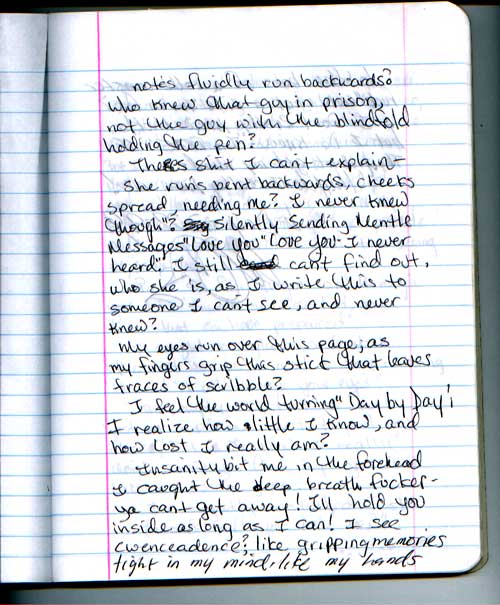 notes fluidly run backwards?
who knew that guy in prison,
not the guy with the blindfold
holding the pen?
Theres shit I can't explain-
she runs bent backwards, cheeks
spread, needing me? I never knew
though"? Silently Sending Mentle
Messages "Love you" Love you- I never
heard." I still can't find out,
who she is, as I write this to
someone I can't see, and never
knew?
My eyes run over this page; as
my fingers grip this stick that leaves
traces of scribble?
I feel the world turning "Day by Day"!
I realize how little I know, and
how lost I really am?
Insanity bit me in the forehead
I caught the deep breath fucker-
ya can't get away! I'll hold you
inside as long as I can! I see
cwenceadence?, like gripping memories
tight in my mind, like my hands